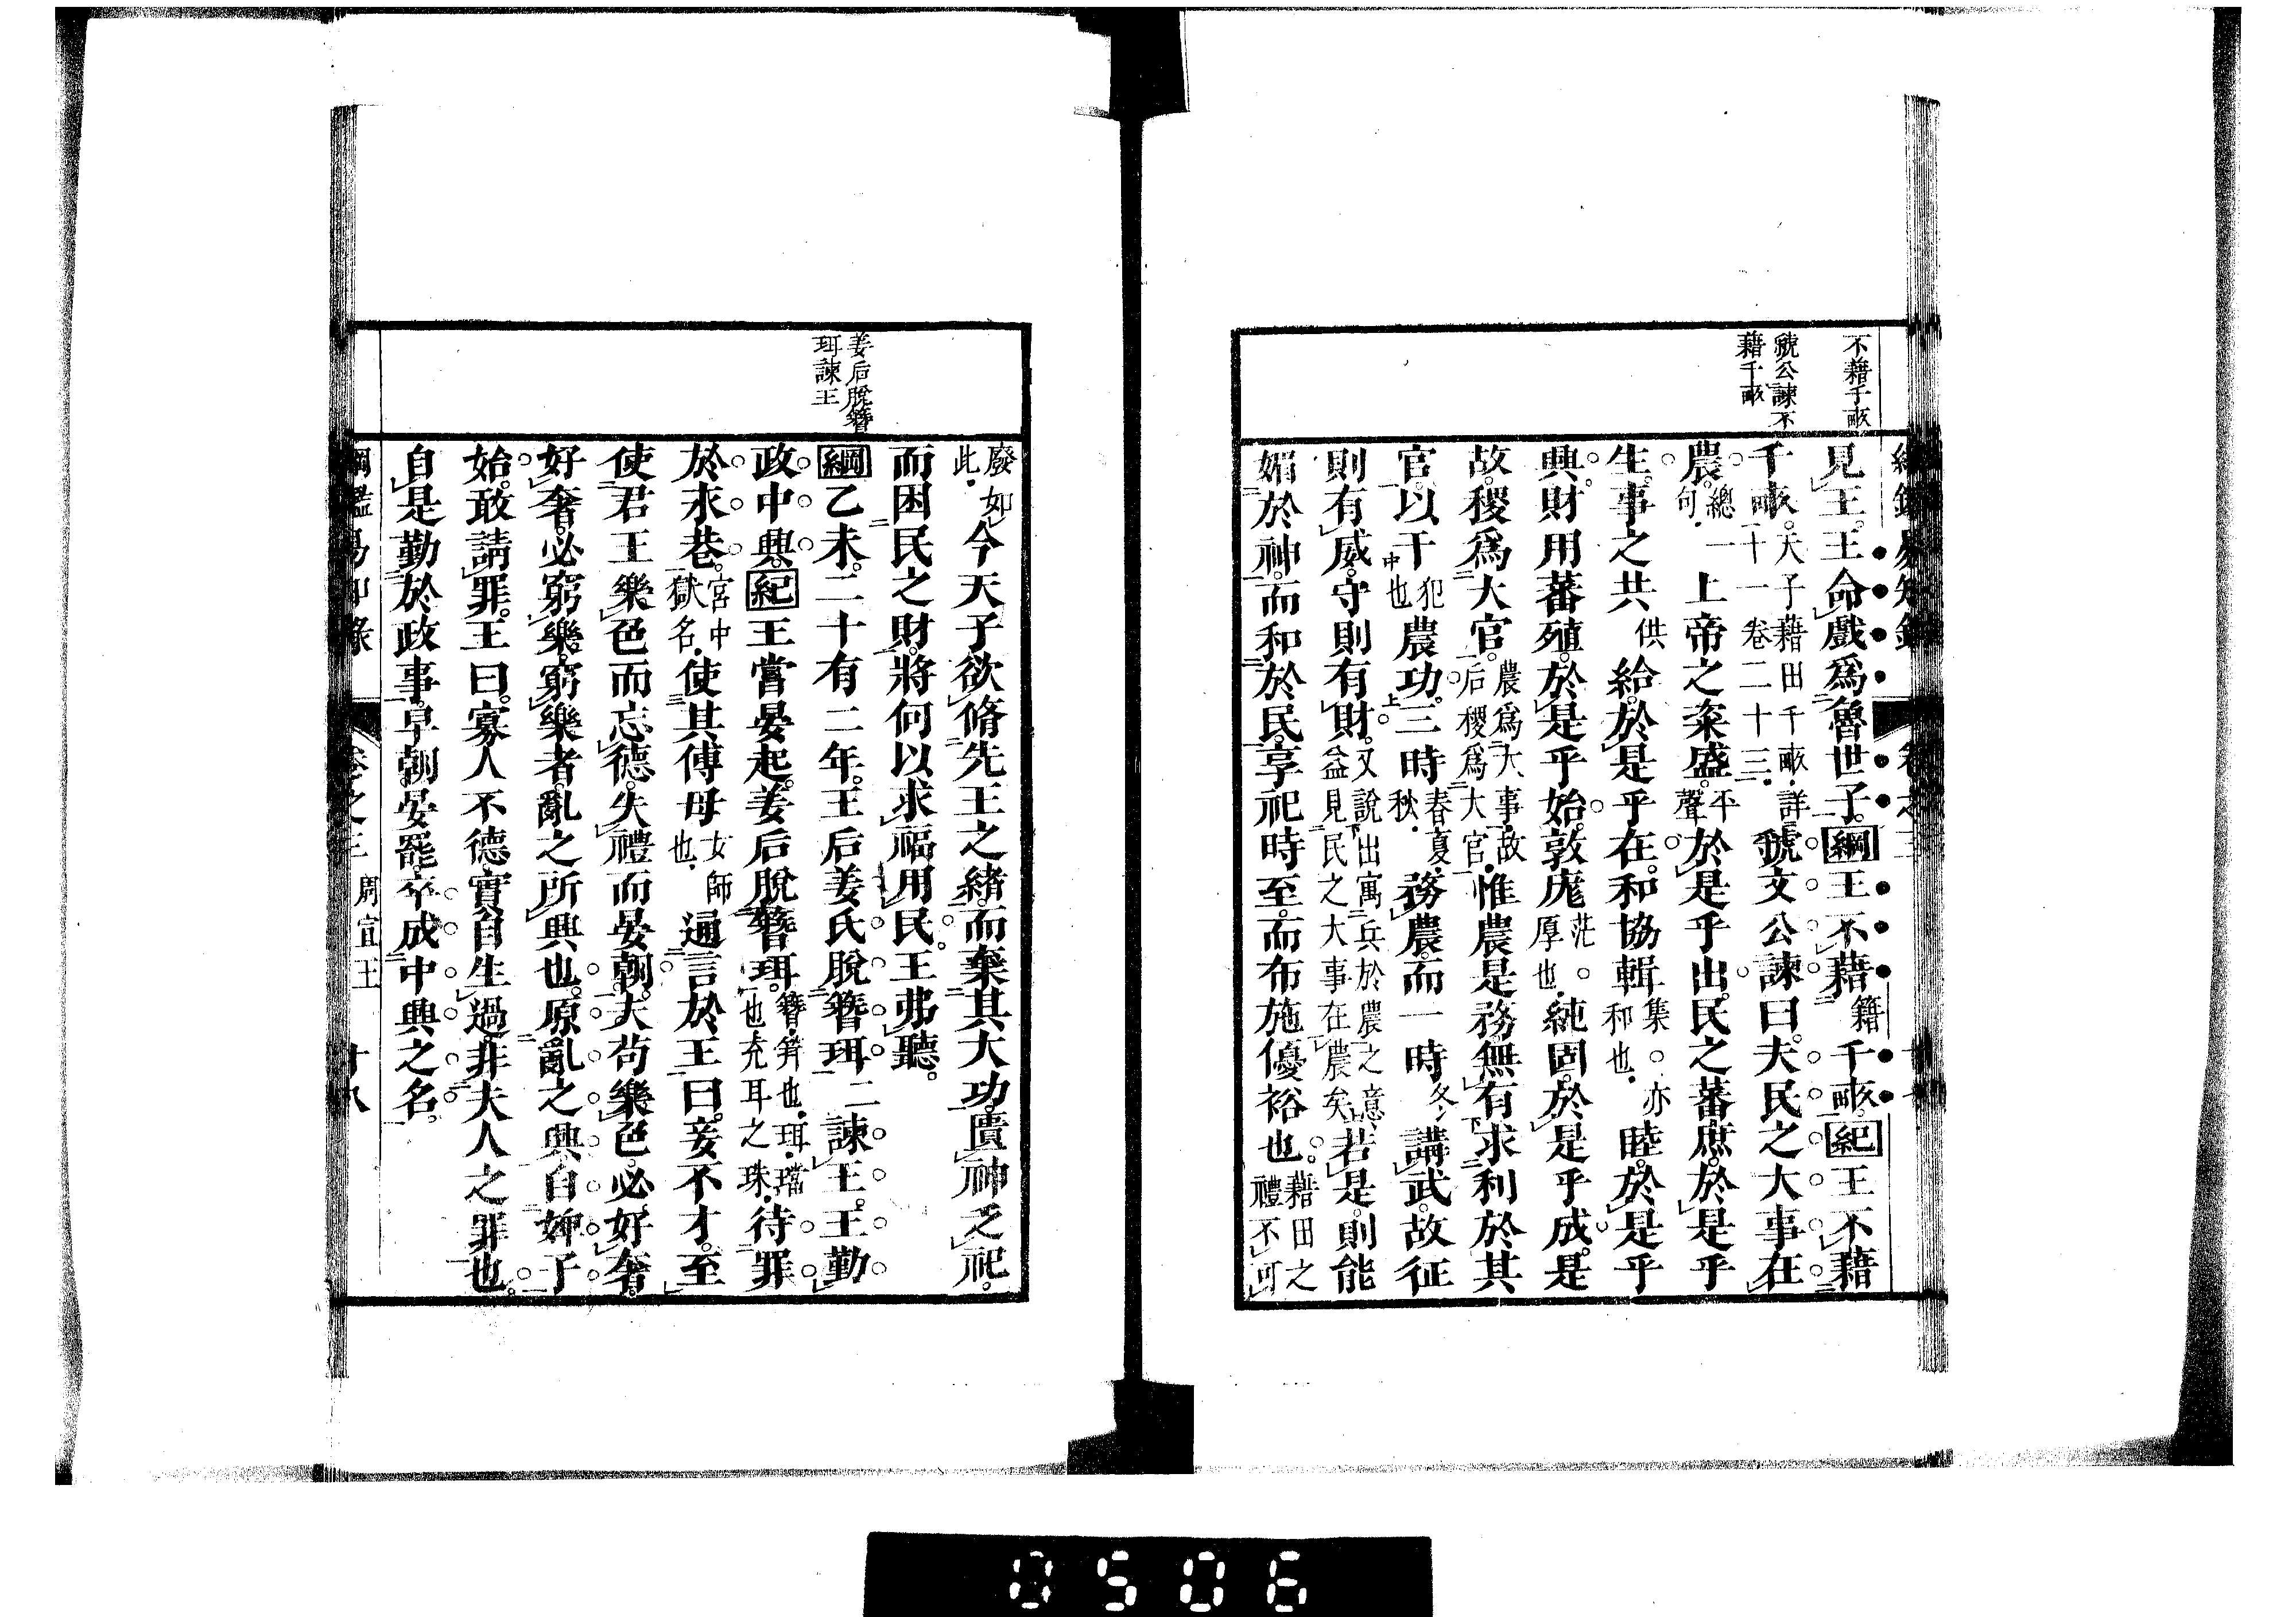 不藉千畝
虢公諫不
藉千畝
見王王命戲爲魯世子綱王不藉籍千畝紀王不藉
千畝天子藉田千畝詳十一卷二十三虢文公諫曰夫民之大事在
農總一句上帝之粢盛平聲於是乎出民之蕃庶於是乎
生事之共供給於是乎在和協輯集亦和也睦於是乎
興財用蕃殖於是乎始敦庬茫厚也純固於是乎成是
故稷爲大官農爲大事故后稷爲大官惟農是務無有求利於其
官以干犯也農功三時春夏秋務農而一時冬講武故征
則有威守則有財又說出寓兵於農之意益見民之大事在農矣若是則能
媚於神而和於民享祀時至而布施優裕也藉田之禮不可
姜后脫簪
珥諫王
廢如此今天子欲脩先王之緒而棄其大功匱神乏祀
而困民之財將何以求福用民王弗聽
綱乙未二十有二年王后姜氏脫簪珥二諫王王勤
政中興紀王嘗晏起姜后脫簪珥簪筓也珥璫也充耳之珠待罪
於永巷宮中獄名使其傅母女師也通言於王曰妾不才至
使君王樂色而忘德失禮而晏朝夫苟樂色必好奢
好奢必窮樂窮樂者亂之所興也原亂之興自婢子
始敢請罪王曰寡人不德實自生過非夫人之罪也
自是勤於政事早朝晏罷卒成中興之名
卷之三 周宣王 十八
0506